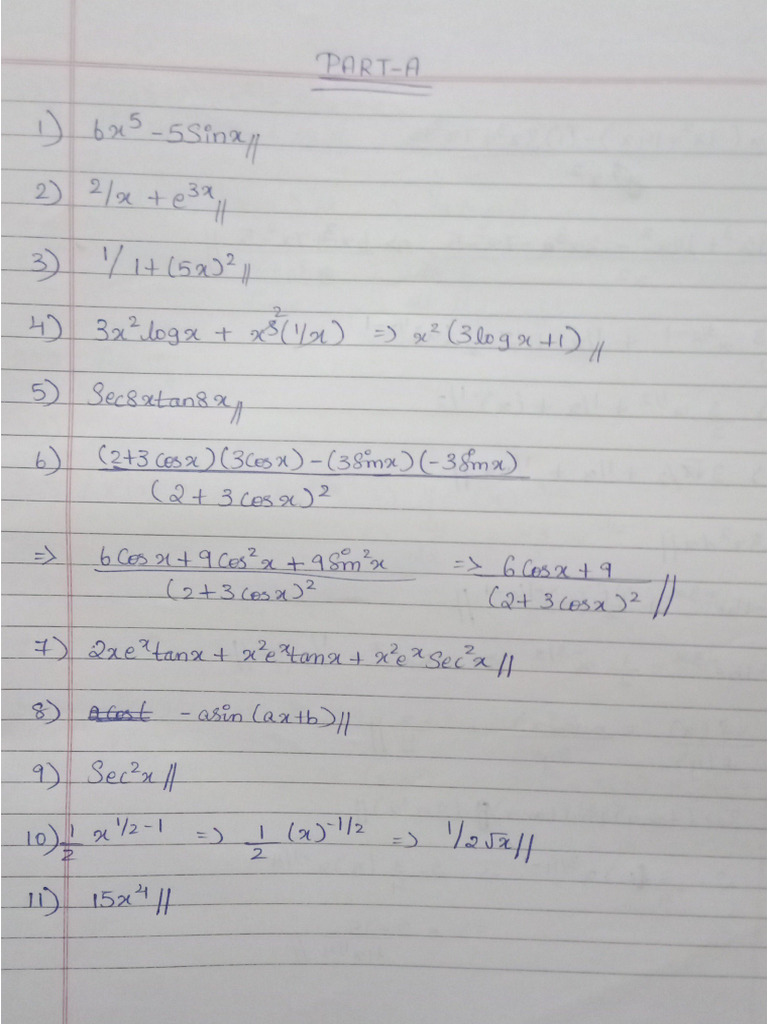 PART-A
1) 6x⁵ - 5Sinx//
2) 2/x + e³ˣ//
3) 1/1+(5x)²//
4) 3x² logx + x³(1/x) => x²(3logx+1)//
5) Sec8xtan8x//
6) (2+3cosx)(3cosx) - (3sinx)(-3sinx) / (2+3cosx)²
=> 6cosx + 9cos²x + 9sin²x / (2+3cosx)² => 6cosx + 9 / (2+3cosx)² //
7) 2xeˣtanx + x²eˣtanx + x²eˣSec²x//
8) -asin(ax+b)//
9) Sec²x//
10) 1/2 x^1/2-1 => 1/2 (x)^-1/2 => 1/2√x//
11) 15x⁴//